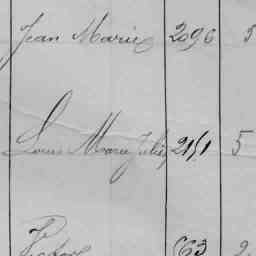 Jean Marie 2096 5
Louis Marie Julien 2151 5
63 2